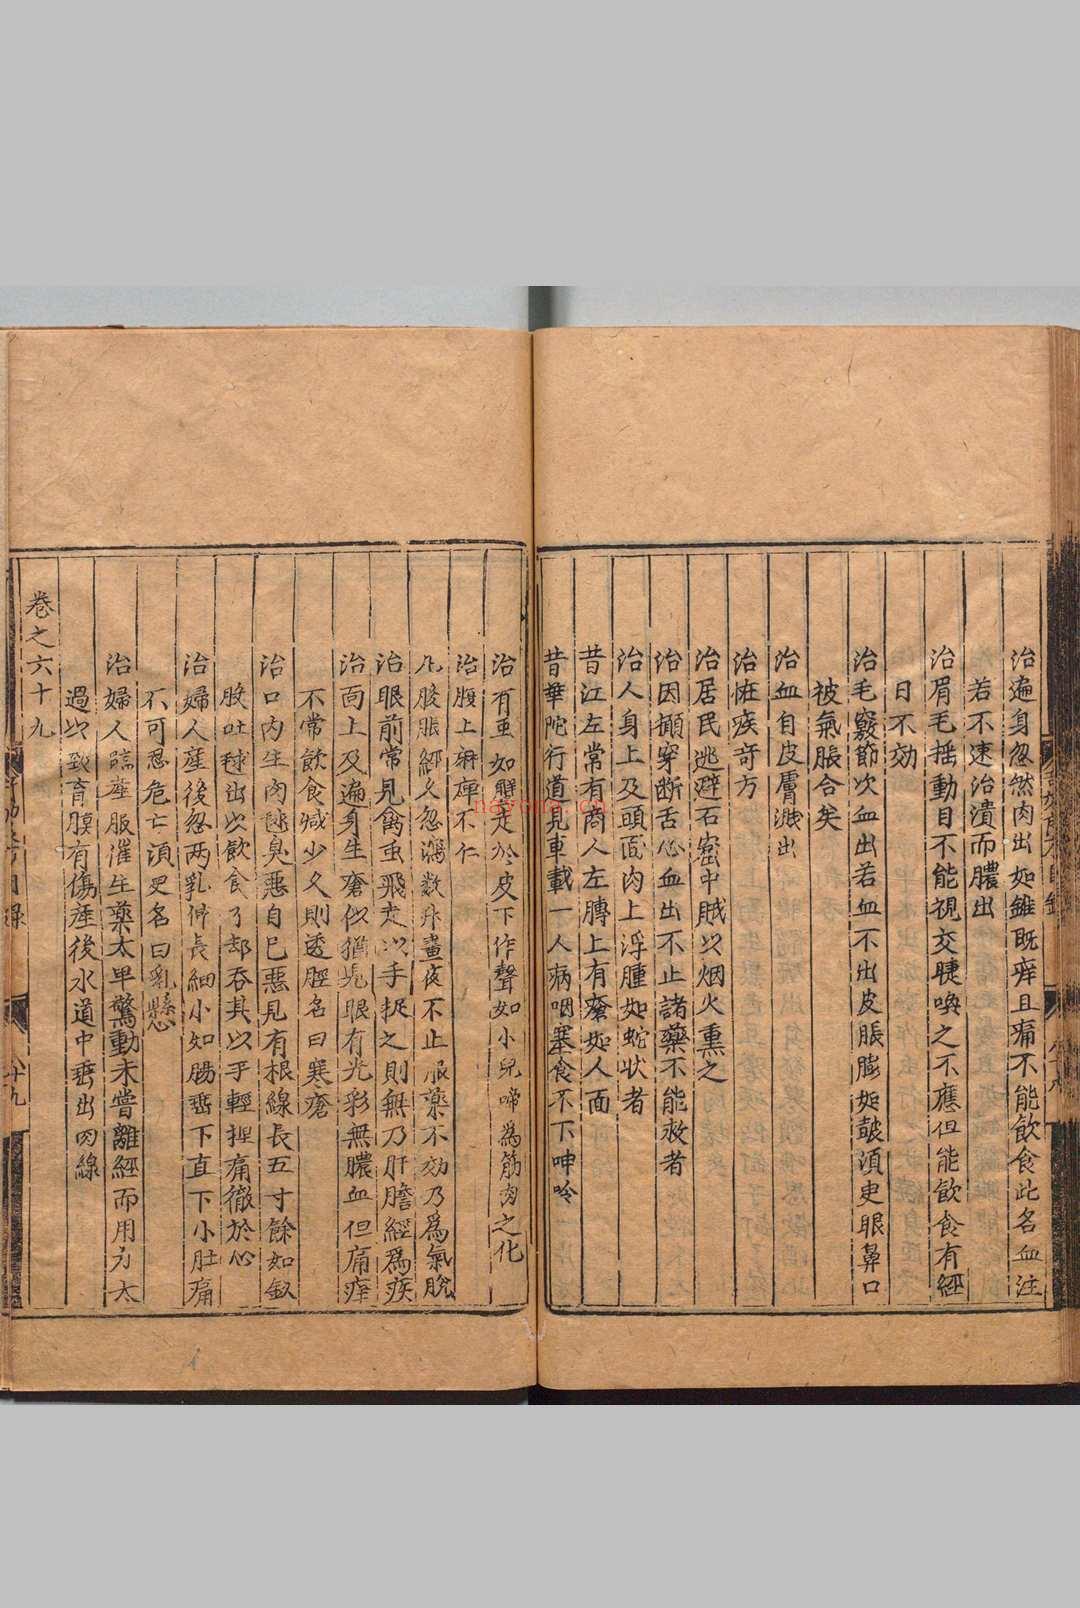 治遍身忽然肉出如錐既痒且痛不能飲食此名血注
若不速治潰而膿出
治眉毛揺動目不能視交睫喚之不應但能飲食有經
日不効
治毛竅節次血出若血不出皮脹膨如皷湏臾眼鼻口
被氣脹合矣
治血自皮膚濺出
治恠疾竒方
治居民逃避石宻中賊以烟火熏之
治因攧穿斷舌心血出不止諸藥不能救者
治人身上及頭靣肉上浮腫如蛇状者
昔江左常有商人左膊上有瘡如人面
昔華陀行道見車載一人病咽塞食不下呻吟
治有虫如蠏走於皮下作聲如小兒啼為筋肉之化
治腹上麻痺不仁
凡腹脹經久忽瀉数升晝夜不止服藥不効乃為氣脫
治眼前常見禽虫飛走以手捉之則無乃肝膽經為疾
治面上及遍身生瘡似猫兒眼有光彩無膿血但痛痒
不常飲食减少久則透脛名曰寒瘡
治口内生肉毬臭惡自已惡見有根線長五寸餘如釵
股吐毬出以飲食了却吞其以手輕捏痛徹於心
治婦人産後忽两乳伸長細小如腸垂下直下小肚痛
不可忍危亡湏叟名曰乳懸
治婦人臨産服催生藥太早驚動未嘗離經而用力太
過以致肓膜有傷産後水道中垂出肉線
卷之六十九
nayona.cn